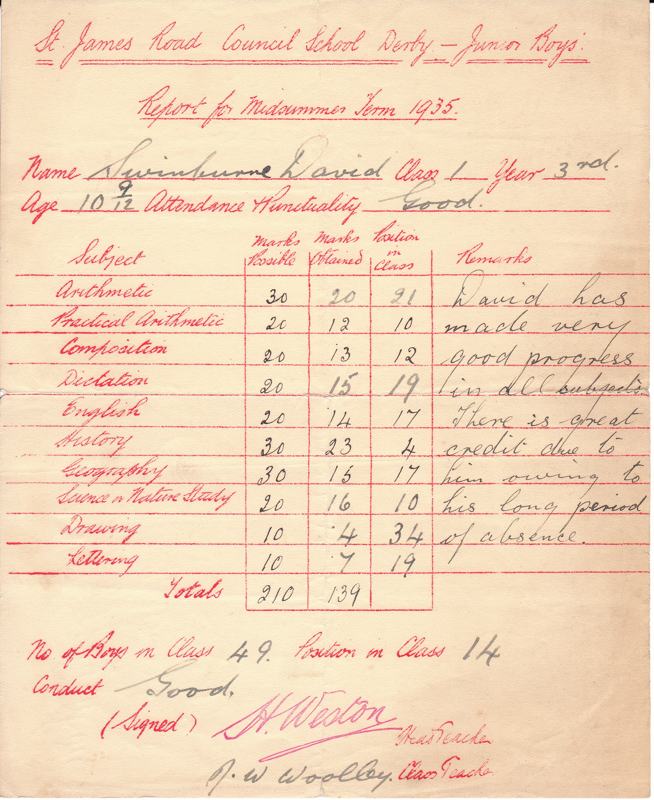 St. James Road Council School Derby — Junior Boys'.
Report for Midsummer Term 1935.
Name Swinburne David Class 1 Year 3rd.
Age 10 9/12 Attendance & Punctuality Good.
Subject Marks Possible Marks Obtained Position in Class Remarks
Arithmetic 30 20 21 David has
Practical Arithmetic 20 12 10 made very
Composition 20 13 12 good progress
Dictation 20 15 19 in all subjects.
English 20 14 17 There is great
History 30 23 4 credit due to
Geography 30 15 17 him owing to
Science or Nature Study 20 16 10 his long period
Drawing 10 4 34 of absence.
Lettering 10 7 19
Totals 210 139
No. of Boys in Class 49. Position in Class 14
Conduct Good.
(Signed) H. Weston Head Teacher
W Woolley. Class Teacher